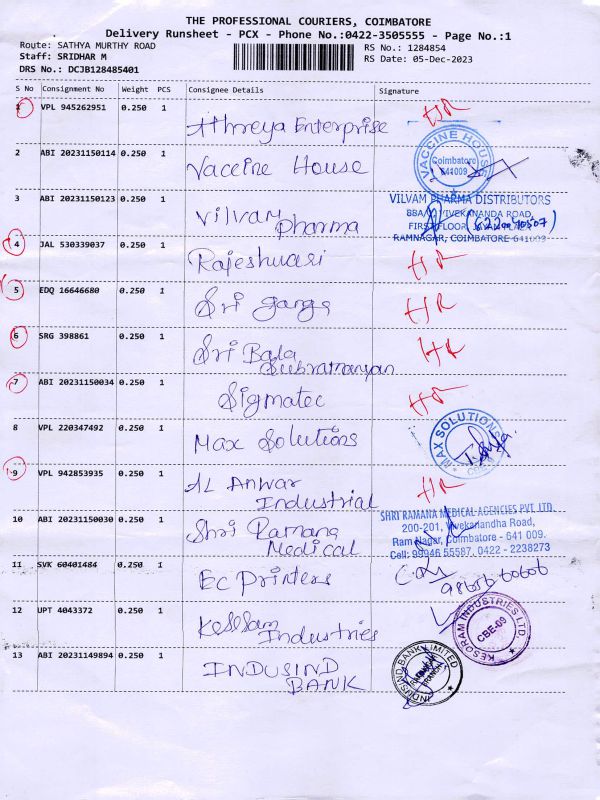 THE PROFESSIONAL COURIERS, COIMBATORE
Delivery Runsheet - PCX - Phone No.:0422-3505555 - Page No.:1
Route: SATHYA MURTHY ROAD
Staff: SRIDHAR M
DRS No.: DCJB128485401
RS No.: 1284854
RS Date: 05-Dec-2023
S No Consignment No Weight PCS Consignee Details Signature
1 VPL 945262951 0.250 1 Athreya Enterprise HR
2 ABI 20231150114 0.250 1 Vaccine House
VACCINE HOUSE
Coimbatore
641009
3 ABI 20231150123 0.250 1 Vilvam
Pharma
VILVAM PHARMA DISTRIBUTORS
VIVEKANANDA ROAD,
FIRST FLOOR
RAMNAGAR, COIMBATORE-641009
4 JAL 530339037 0.250 1 Rajeshwari HR
5 EDQ 16646680 0.250 1 Sri ganga HR
6 SRG 398861 0.250 1 Sri Bala
Subramanyan
HR
7 ABI 20231150034 0.250 1 Sigmatec HR
8 VPL 220347492 0.250 1 Max Solutions
MAX SOLUTIONS
CBE
9 VPL 942853935 0.250 1 AL Anwar
Industrial
HR
10 ABI 20231150030 0.250 1 Shri Ramana
Medical
SHRI RAMANA MEDICAL AGENCIES PVT. LTD.
200-201, Vivekanandha Road,
Ram Nagar, Coimbatore - 641 009.
Cell: 99946 55587, 0422 - 2238273
11 SVK 60401484 0.250 1 Ec Printers
12 UPT 4043372 0.250 1 Kesoram
Industries
KESORAM INDUSTRIES LTD.
CBE-09
13 ABI 20231149894 0.250 1 INDUSIND
BANK
INDUSIND BANK LIMITED